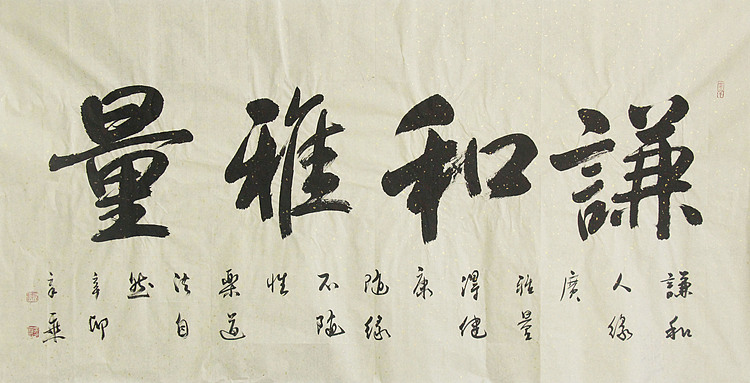 謙和雅量
謙和
人緣
廣
雅量
得健
康
随緣
不随
性
樂道
法自
然
辛卯